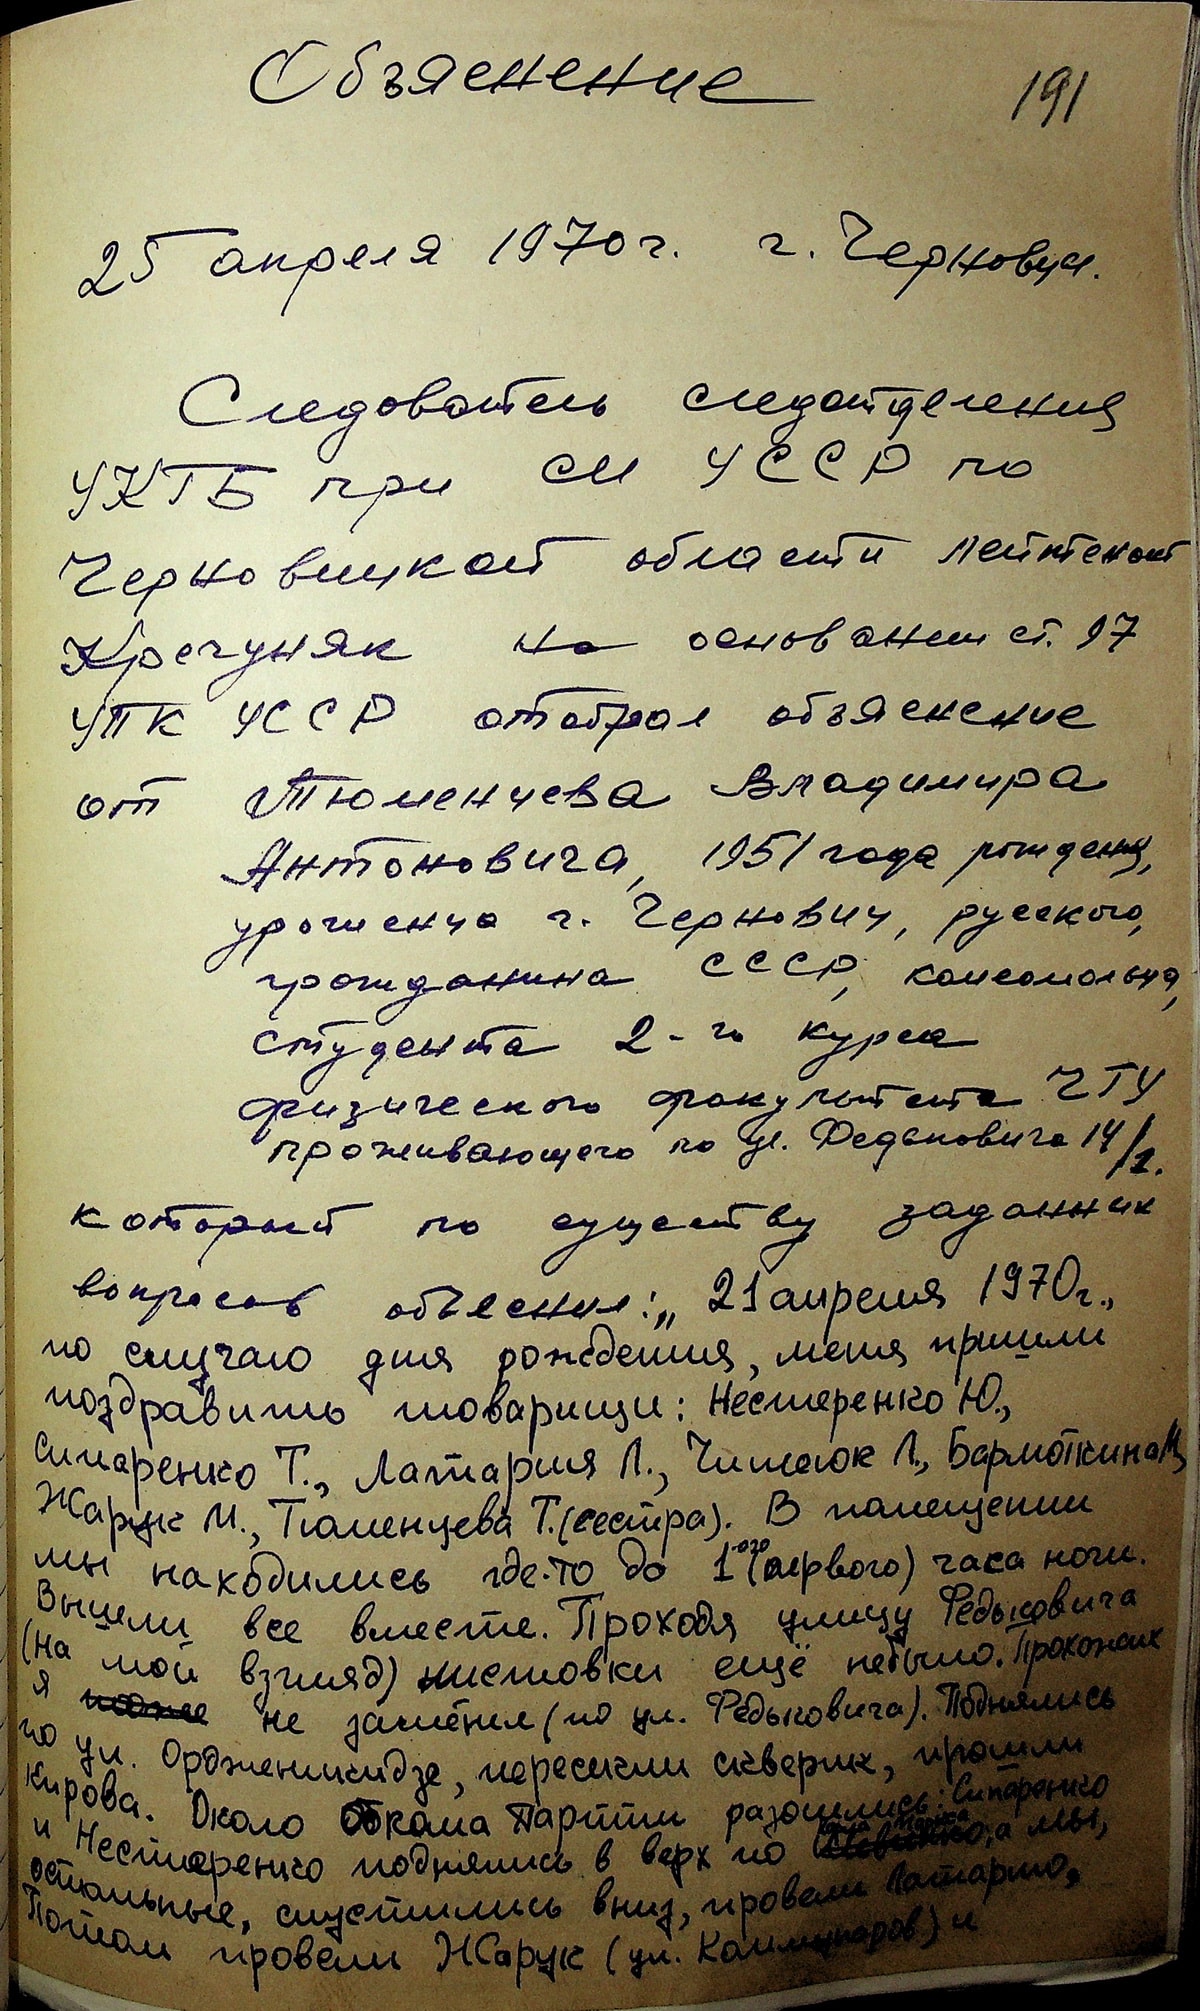 Объяснение
191
25 апреля 1970 г. г. Черновцы.
Следователь следотделения
УКГБ при СМ УССР по
Черновицкой области лейтенант
Кречуняк на основании ст. 97
УПК УССР отобрал объяснение
от Тюменцева Владимира
Антоновича, 1951 года рождения,
уроженца г. Черновиц, русского,
гражданина СССР, комсомольца,
студента 2-го курса
физического факультета ЧГУ
проживающего по ул. Федьковича 14/1.
который по существу заданных
вопросов объяснил: „21 апреля 1970 г.,
по случаю дня рождения, меня пришли
поздравить товарищи: Нестеренко Ю.,
Сипаренко Т., Латария Л., Чипаюк Л., Бармоткина М,
Жарук М., Тюменцева Т. (сестра). В помещении
мы находились где-то до 1-ого (первого) часа ночи.
Вышли все вместе. Проходя улицу Федьковича
(на мой взгляд) листовки ещё небыло. Прохожих
я не заметил (по ул. Федьковича). Поднялись
по ул. Орджоникидзе, пересекли скверик, прошли
Кирова. Около Обкома Партии разошлись: Сипаренко
и Нестеренко поднялись в верх по а мы,
остальные, спустились вниз, провели Латарию,
Потом провели Жарук (ул. Коммунаров) и